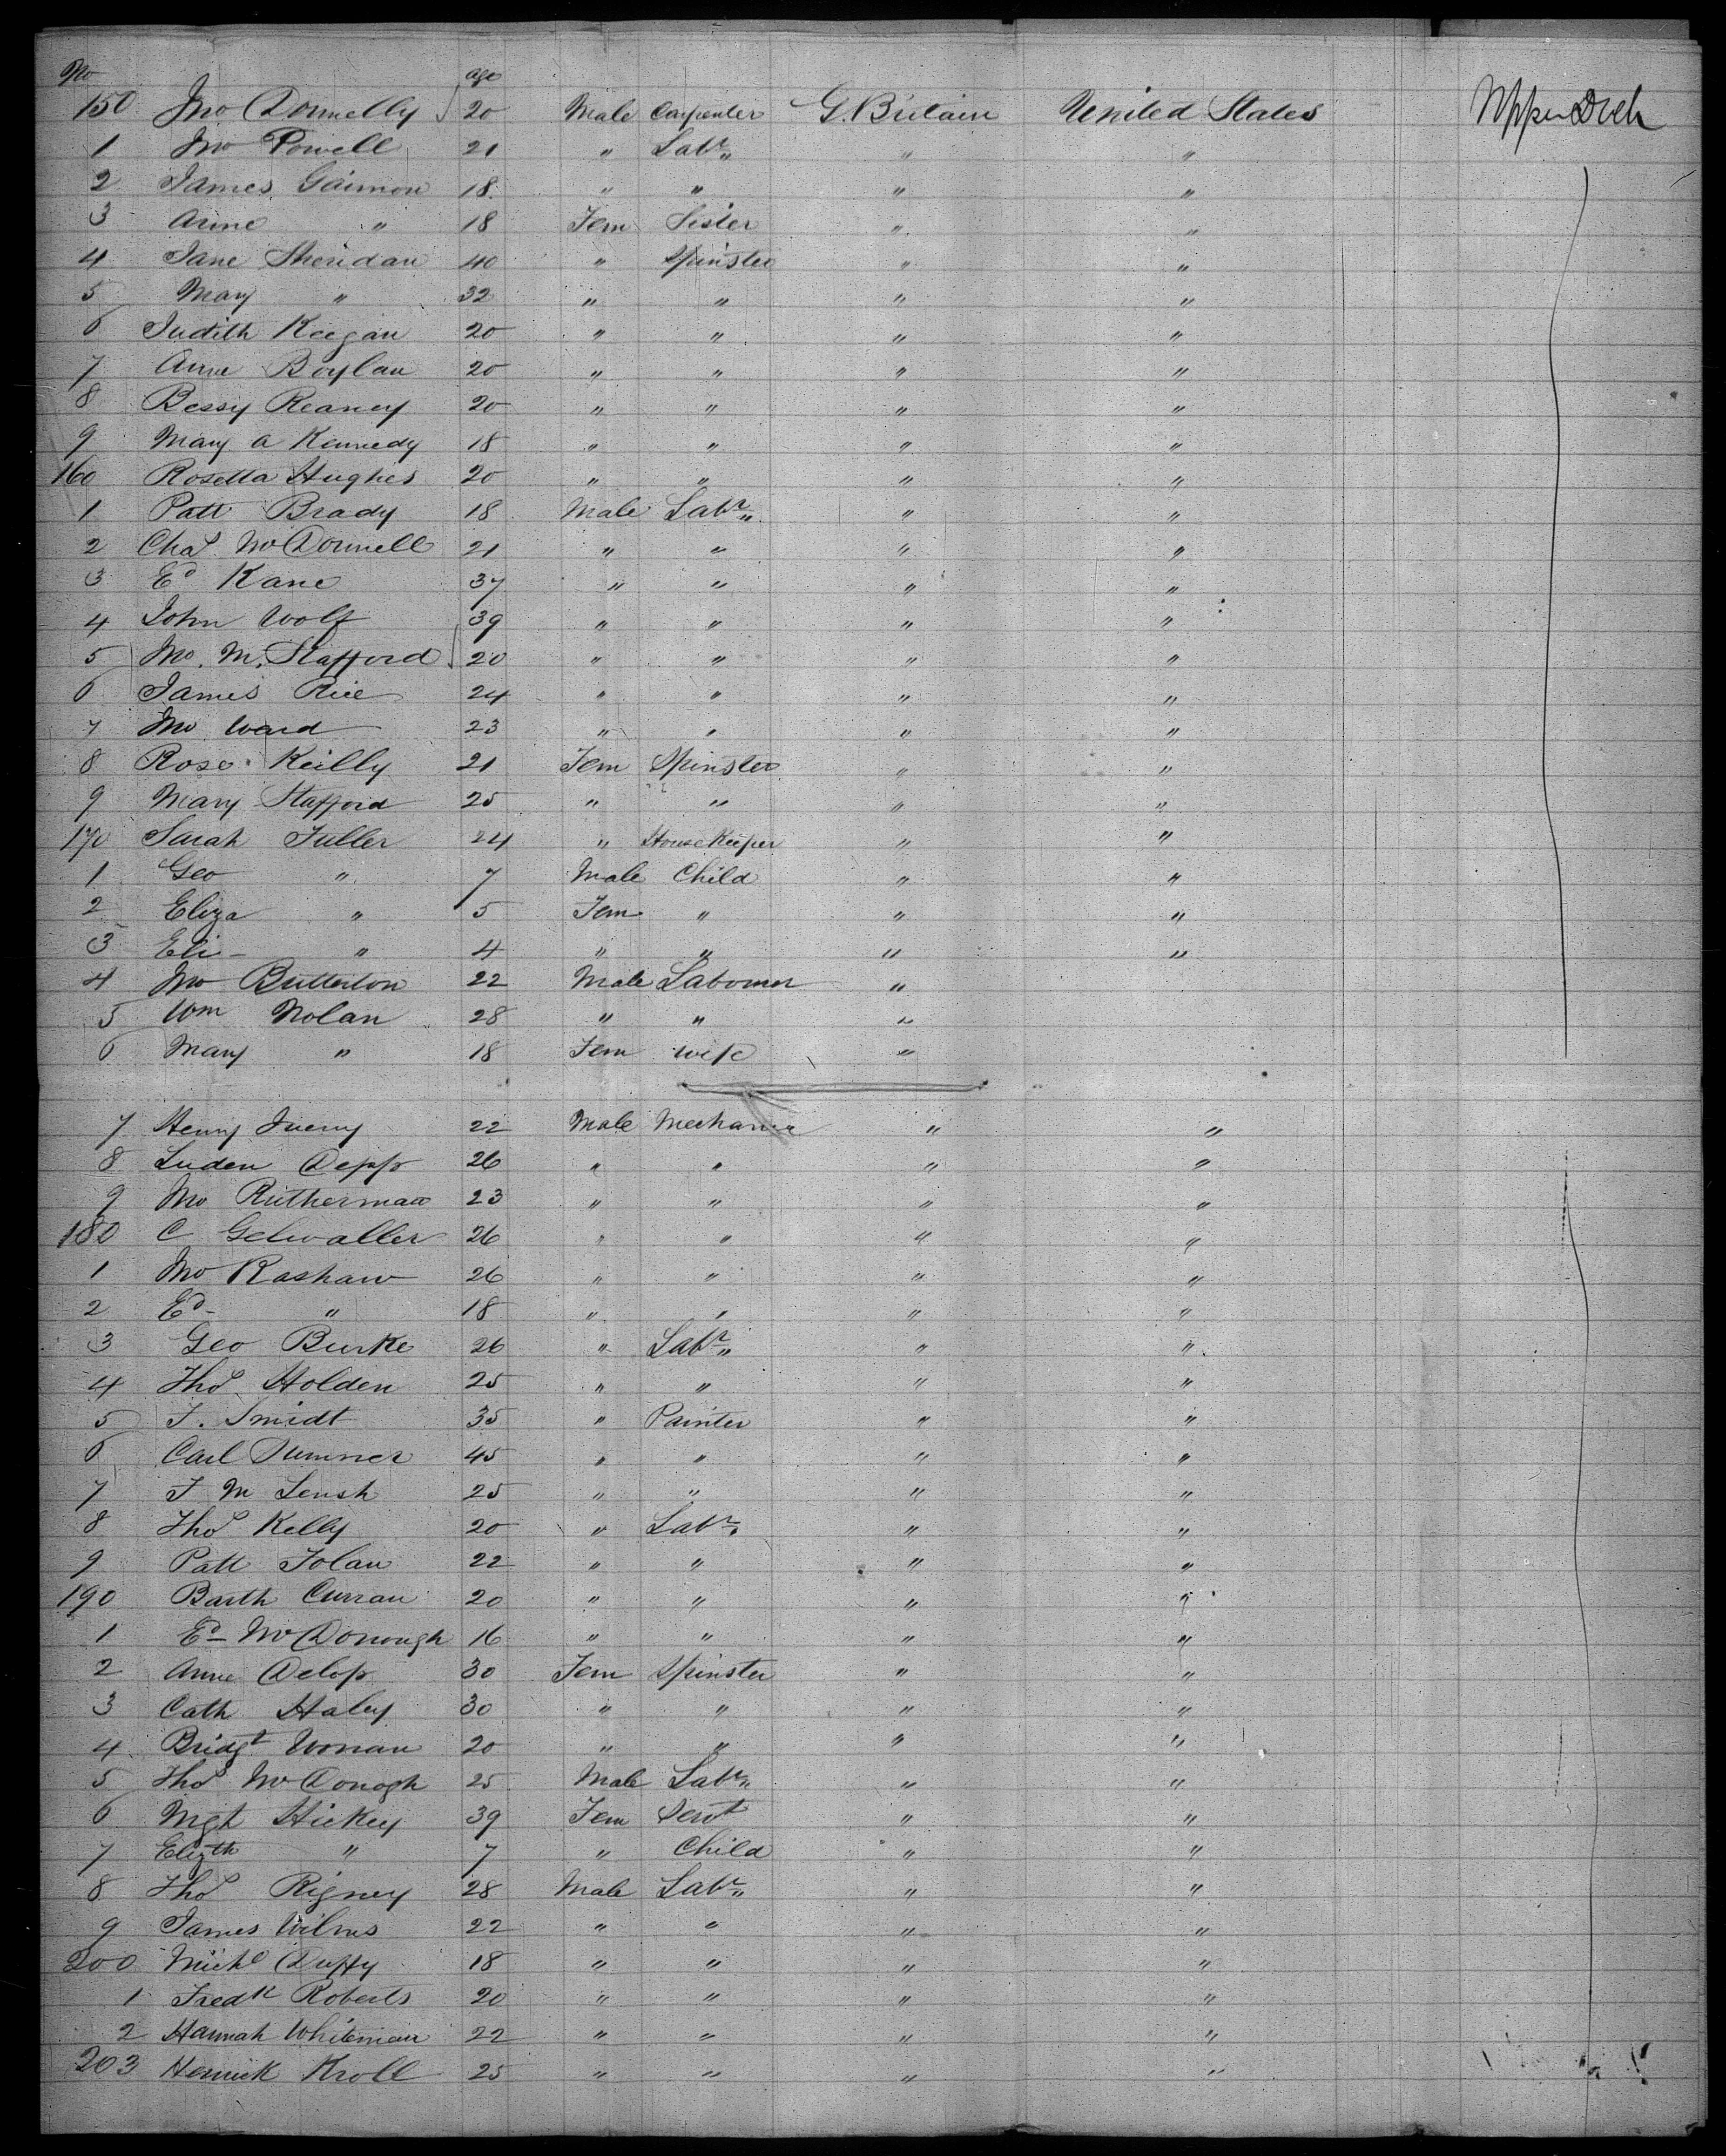 No age
150 Jno Donnelly 20 Male Carpenter G. Britain United States Upper Deck
1 Jno Powell 21 " Labr " "
2 James Gaimon 18 " " " "
3 Anne " 18 Fem Sister " "
4 Jane Sheridan 40 " Spinster " "
5 Mary " 32 " " " "
6 Judith Keegan 20 " " " "
7 Anne Boylan 20 " " " "
8 Bessy Reaney 20 " " " "
9 Mary A Kennedy 18 " " " "
160 Rosetta Hughes 20 " " " "
1 Patt Brady 18 Male Labr " "
2 Chas McDonnell 21 " " " "
3 Ed Kane 37 " " " "
4 John Wolf 39 " " " "
5 Jno. M. Stafford 20 " " " "
6 James Rice 24 " " " "
7 Jno Ward 23 " " " "
8 Rose Reilly 21 Fem Spinster " "
9 Mary Stafford 25 " " " "
170 Sarah Fuller 24 " House Keeper " "
1 Geo " 7 Male Child " "
2 Eliza " 5 Fem " " "
3 Eli- " 4 " " " "
4 Jno Butterton 22 Male Labourer "
5 Wm Nolan 28 " " "
6 Mary " 18 Fem wife "
7 Henry 22 Male Mechanic " "
8 Luden Depp 26 " " " "
9 Jno 23 " " " "
180 C 26 " " " "
1 Jno Rashaw 26 " " " "
2 Ed- " 18 " " " "
3 Geo Burke 26 " Labr " "
4 Thos Holden 25 " " " "
5 F. Smidt 35 " Painter " "
6 Carl Sumner 45 " " " "
7 F M Lensh 25 " " " "
8 Thos Kelly 20 " Labr " "
9 Patt Folan 22 " " " "
190 Barth Curran 20 " " " "
1 Ed- McDonough 16 " " " "
2 Anne 30 Fem Spinster " "
3 Cath Haley 30 " " " "
4 Bridgt 20 " " " "
5 Thos McDonogh 25 Male Labr " "
6 Mgt Hickey 39 Fem Servt " "
7 Elizth " 7 " Child " "
8 Thos Rigney 28 Male Labr " "
9 James Wilms 22 " " " "
200 Michl Duffy 18 " " " "
1 Fredk Roberts 20 " " " "
2 Hannah Whiteman 22 " " " "
203 Kroll 25 " " " "